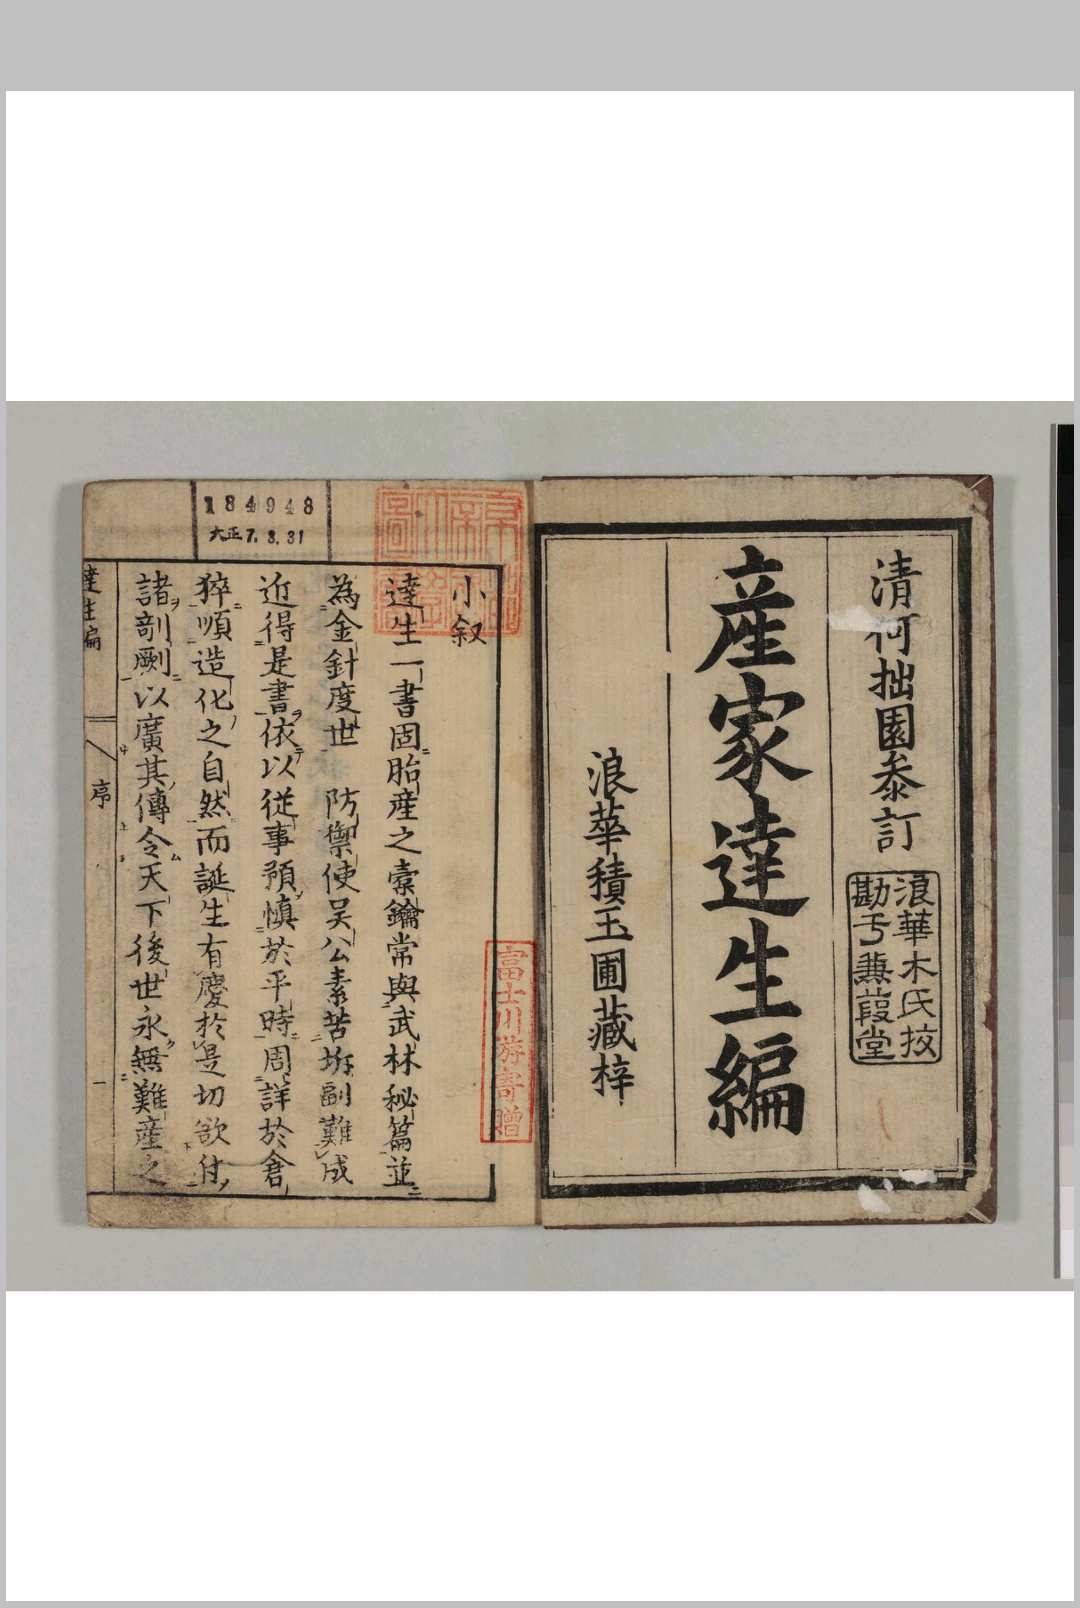 清河拙園叅訂
浪華木氏挍
勘于蒹葭堂
産家達生編
浪華積玉圃藏梓
富士川游寄贈
184948
大正7.3.31
小叙
達生一書固胎産之橐鑰常與武林秘篇並
為金針度世 防禦使吴公素苦坼副難成
近得是書依以従事預慎於平時周詳於倉
猝順造化之自然而誕生有慶於是切欲付
諸剞劂以廣其傳令天下後世永無難産之
達生編
序
一